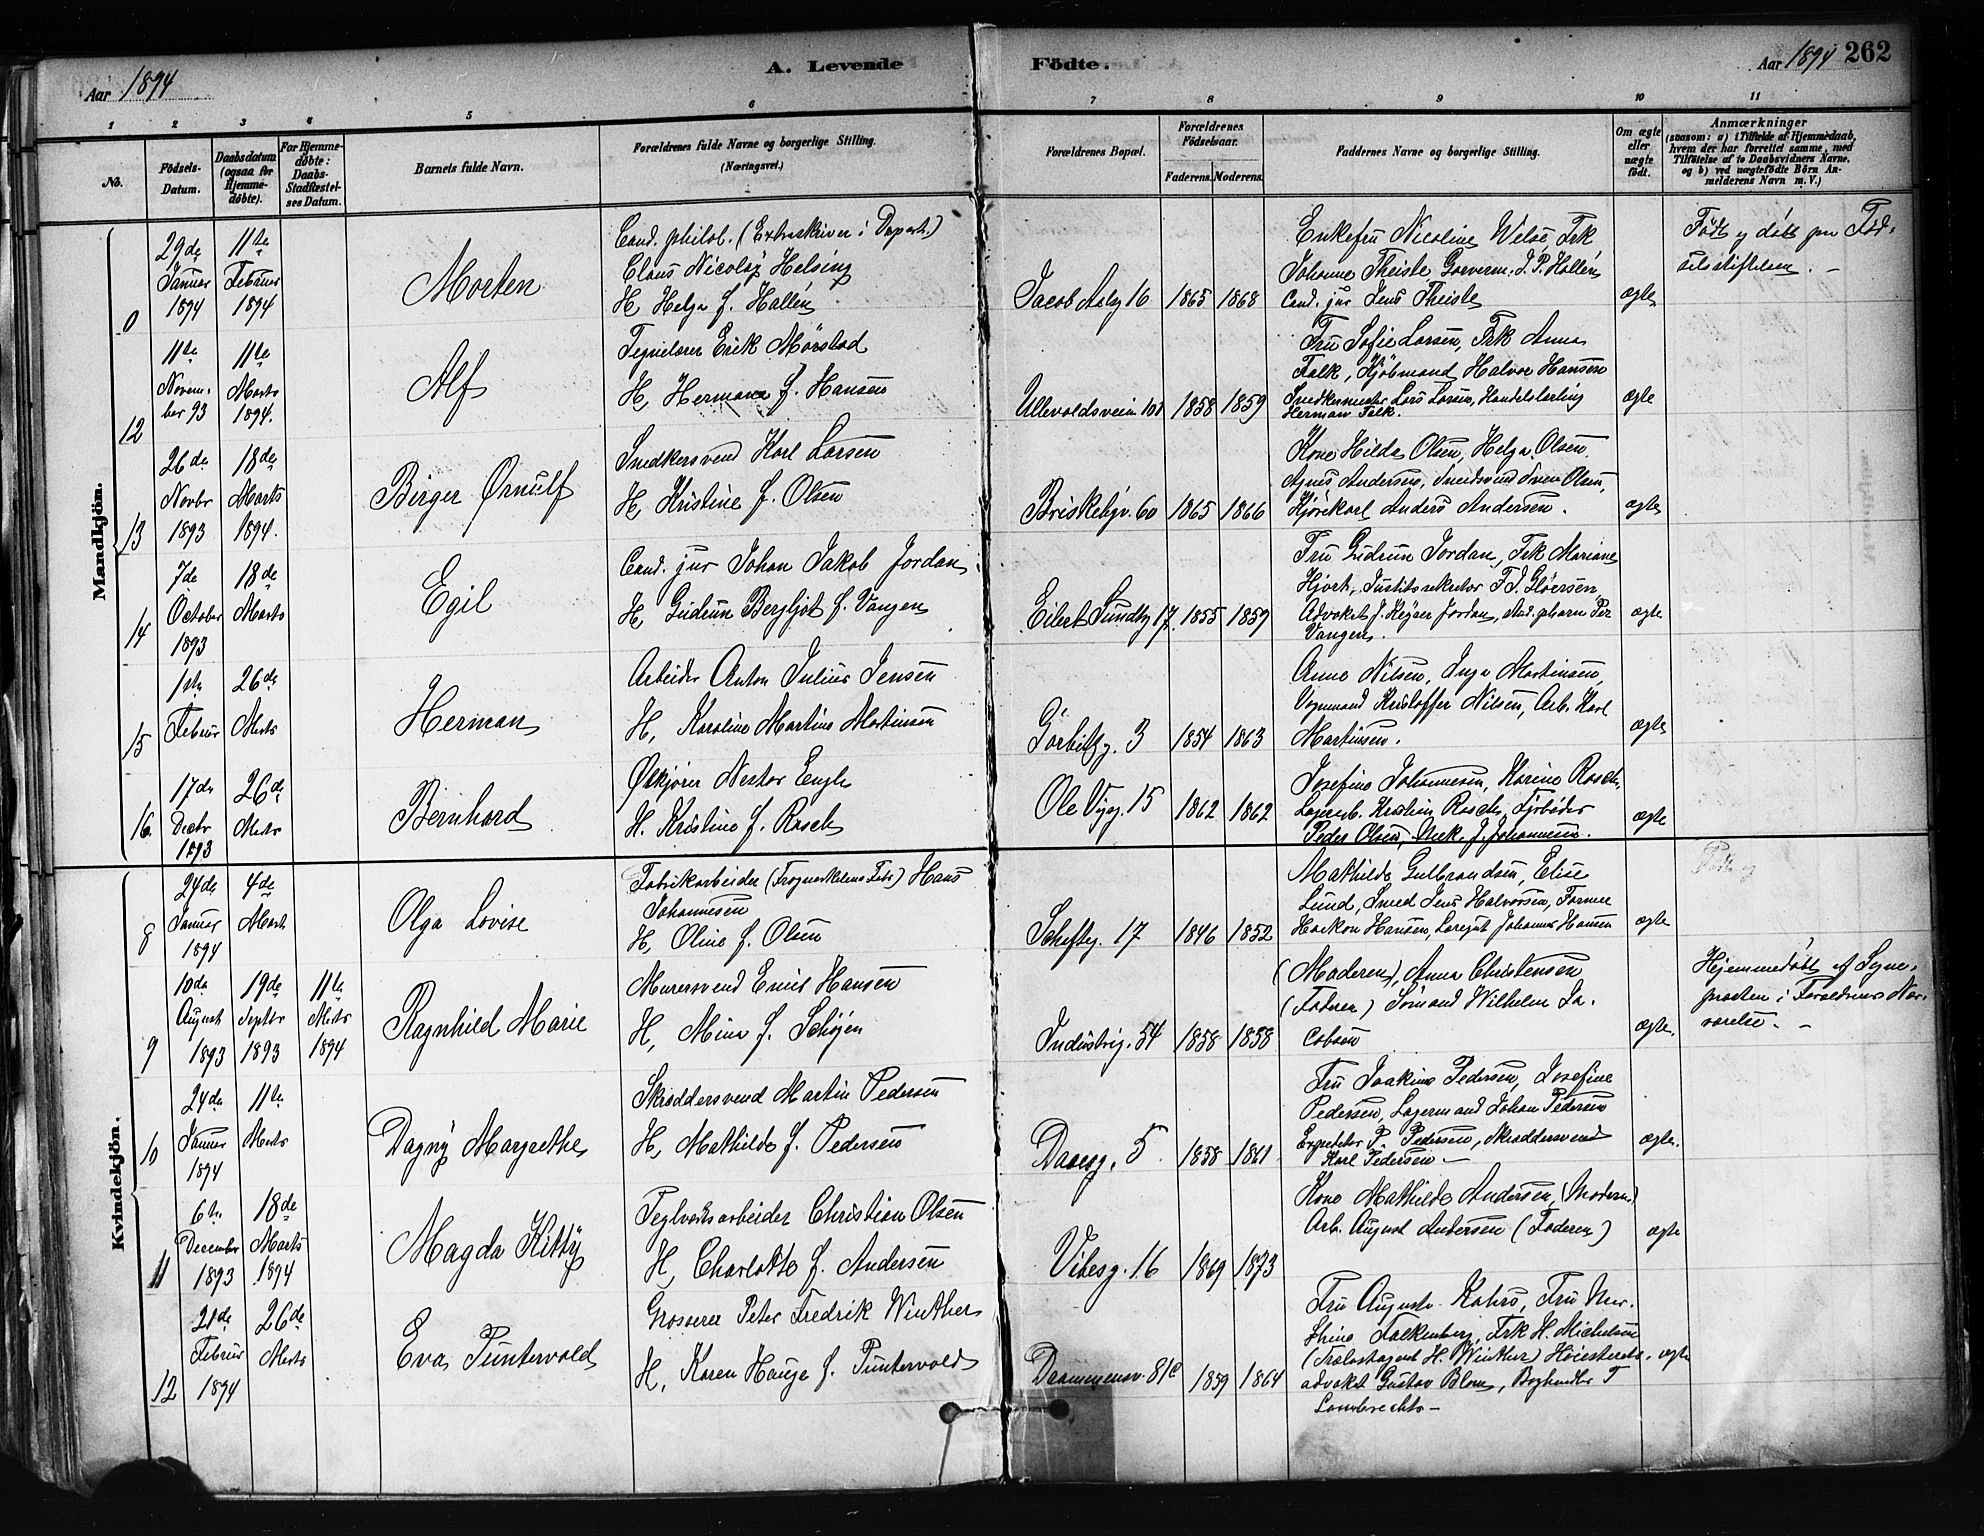 Aar 1894
A. Levende
Födte.
Aar 1894
262
1 2 3 4 5 6 7 8 9 10 11
No.
Födsels-
Datum.
Daabsdatum
(ogsaa for
Hjemme-
döbte).
For Hjemme-
döbte:
Daabs-
Stadfæstel-
ses Datum.
Barnets fulde Navn.
Forældrenes fulde Navne og borgerlige Stilling.
(Næringsvei.)
Forældrenes Bopæl.
Forældrenes
Födselsaar.
Faderens. Moderens.
Faddernes Navne og borgerlige Stilling.
Om ægte
eller
uægte
födt.
Anmærkninger
(saasom: a) i Tilfælde af Hjemmedaab,
hvem der har forrettet samme, med
Tilföielse af to Daabsvidners Navne,
og b) ved uægtefödte Börn An-
melderens Navn m. V.)
Mandkjön.
0
29de
Januar
1894
11te
Februar
1894
Morten
Cand. philol. (Extraskriver i Depart.)
Claus Nicolay Helsing
H, Helga f. Hallén
Jacob Aalsg 16
1865
1868
Enkefru Nicoline Welse, Frk
Johanne Theiste Gorverm. J. P. Hallén
Cand. jur Jens Theiste
ægte
Födt og döbt paa Föd-
selsstiftelsen. –
12
11te
Novem-
ber 93
11te
Marts
1894.
Alf
Tegnelærer Erik Mörstad
H, Hermana f. Hansen
Ullevoldsveien 101
1858
1859
Fru Sofie Larsen, Frk Anna
Falk, Kjöbmand Halvor Hansen
Snedkermester Lars Larsen, Handelslærling
Herman Falk.
ægte
13
26de
Novbr
1893
18de
Marts
1894.
Birger Ørnulf
Snedkersvend Karl Larsen
H, Kristine f. Olsen
Briskebyv. 60
1865
1866
Kone Hilda Olsen, Helga Olsen
Agnes Andersen, Smedsvend Sven Olsen,
Kjörekarl Anders Andersen.
ægte
14
7de
October
1893
18de
Marts
Egil
Cand. jur Johan Jakob Jordan
H, Gudrun Bergljot f. Vangen
Eilert Sundtsg 17.
1855
1859
Fru Gudrun Jordan, Frk Mariane
Hjort, Justitssekretær F. S. Gløersen,
Advokat J. Keyser Jordan, stud. pharm Per
Vangen.
ægte
15
1ste
Februar
26de
Marts
Herman
Arbeider Anton Julius Jensen
H, Karoline Martine Martinsen
Gørbitzg. 3
1854
1863
Anne Nilsen, Inga Martinsen,
Vognmand Kristoffer Nilsen, Arb. Karl
Martinsen.
ægte
16
17de
Decbr
1893
26de
Marts
Bernhard
Ølkjører Nestor Engh
H. Kristine f. Rasch
Ole Vigsg. 15
1862
1862
Josefine Johannesen, Karine Rasch,
Lagerarb. Kristian Rasch, Fyrböder
Peder Olsen, Mek. J. Johannesen.
ægte
Kvindekjön.
8
24de
Januar
1894
4de
Marts
Olga Lovise
Fabrikarbeider (Frognerkilens Fabr.) Hans
Johannesen
H, Oline f. Olsen
Schultzg. 17
1846
1852
Mathilde Gulbrandsen, Elise
Lund, Smed Jens Halvorsen, Former
Haakon Hansen, Johannes Hansen
ægte
9
10de
August
1893
19de
Septbr
1893
11te
Marts
1894
Ragnhild Marie
Murersvend Emil Hansen
H, Mina f. Schøjen
Industrig. 54
1858
1858
(Moderen), Anna Christensen
(Faderen) Sömand Wilhelm Ja-
cobsen
ægte.
Hjemmedöbt af Sogne-
præsten i Forældrenes Nær-
værelse. –
10
24de
Januar
1894
11te
Marts
Dagny Margrethe
Skræddersvend Martin Pedersen
H, Mathilde f. Pedersen
Daasg. 5
1858
1861
Fru Joakine Pedersen, Josefine
Pedersen, Lagermand Johan Pedersen
Expeditör P. Pedersen, Skræddersvend
Karl Pedersen –
ægte.
11
6te
December
1893
18de
Marts
1894
Magda Kitty
Teglværksarbeider Christian Olsen
H, Charlotte f. Andersen
Vibesg. 16
1869
1873
Kone Mathilde Andersen, (Moderen)
Arb. August Andersen (Faderen)
ægte
12
21de
Februar
1894
26de
Marts
Eva Puntervold
Grosserer Peter Fredrik Winther
H, Karen Hauge f. Puntervold
Drammensv. 81c
1859
1864
Fru Augusta Kahrs, Fru Mar-
thine Falkenberg, Frk H. Michelsen
(Trælastagent H. Winther) Höiesterets-
advokat Gustav Blom, Boghandler T
Lambrechts –
ægte